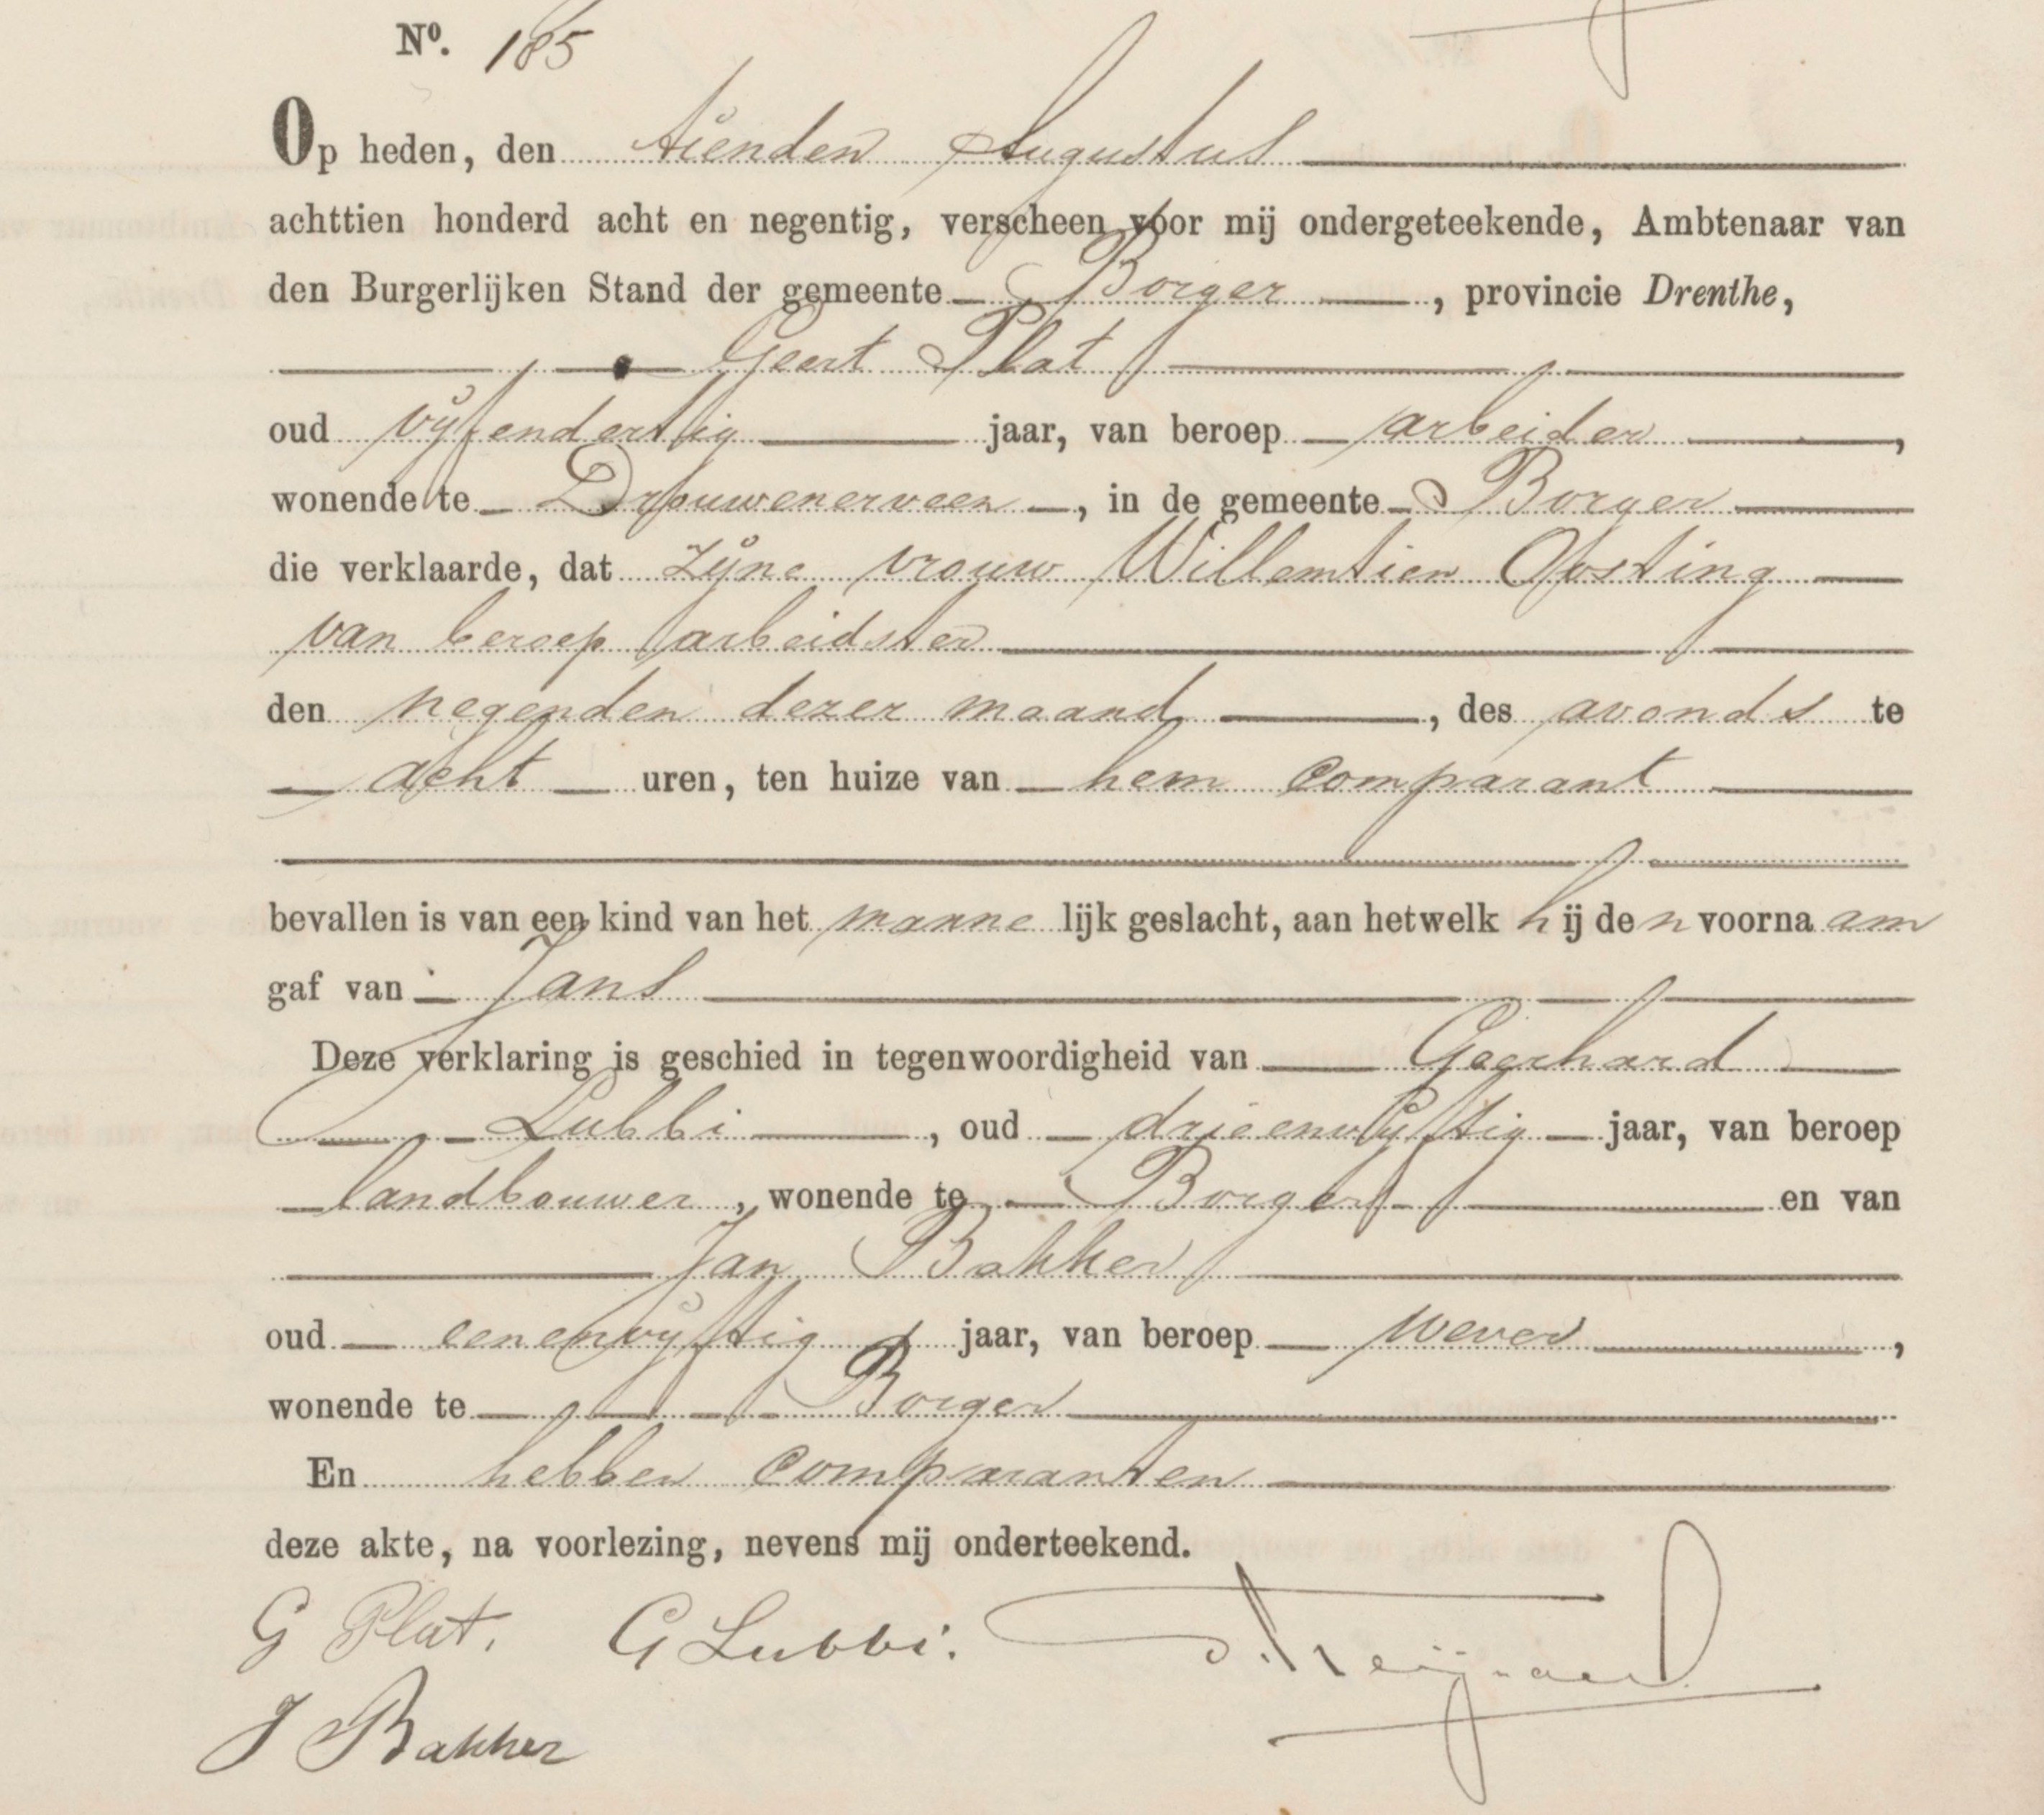 Nº. 185
Op heden, den tienden Augustus
achttien honderd acht en negentig, verscheen voor mij ondergeteekende, Ambtenaar van
den Burgerlijken Stand der gemeente Borger, provincie Drenthe,
Geert Plat
oud vijfendertig jaar, van beroep arbeider,
wonende te Drouwenerveen, in de gemeente Borger
die verklaarde, dat zijne vrouw Willemtien Oosting
van beroep arbeidster
den negenden dezer maand, des avonds te
acht uren, ten huize van hem comparant
bevallen is van een kind van het mannelijk geslacht, aan hetwelk hij den voornaam
gaf van Jans
Deze verklaring is geschied in tegenwoordigheid van Geerhard
Lubbi, oud drieenvijftig jaar, van beroep
landbouwer, wonende te Borger en van
Jan Bakker
oud eenenvijftig jaar, van beroep wever,
wonende te Borger
En hebben comparanten
deze akte, na voorlezing, nevens mij onderteekend.
G Plat. G Lubbi.
J Bakker